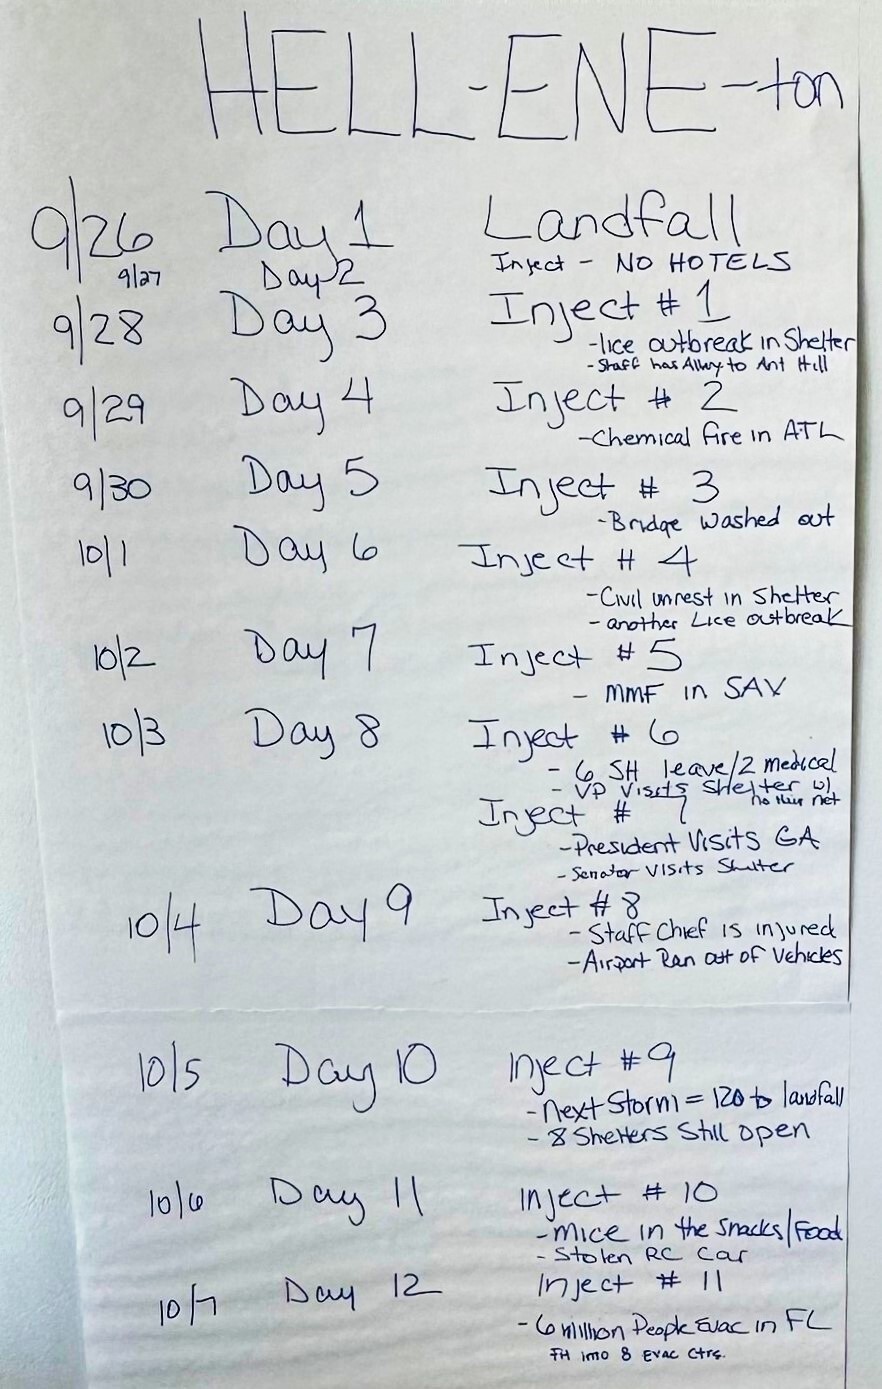 HELL-ENE-ton
9/26 Day 1 Landfall
9/27 Day 2 Inject - NO HOTELS
9/28 Day 3 Inject # 1
-lice outbreak in Shelter
- Staff has Allergy to Ant Hill
9/29 Day 4 Inject # 2
-Chemical fire in ATL
9/30 Day 5 Inject # 3
-Bridge washed out
10/1 Day 6 Inject # 4
-Civil unrest in Shelter
- another Lice outbreak
10/2 Day 7 Inject # 5
- MMF in SAV
10/3 Day 8 Inject # 6
- 6 SH leave/2 medical
- VP Visits Shelter w/
no hair net
Inject # 7
-President Visits GA
- Senator Visits Shelter
10/4 Day 9 Inject # 8
- Staff Chief is injured
-Airport Ran out of Vehicles
10/5 Day 10 Inject #9
-Next Storm = 120 to landfall
- 8 Shelters Still open
10/6 Day 11 Inject # 10
-Mice in the Snacks/Food
- Stolen RC Car
10/7 Day 12 Inject # 11
- 6 million People Evac in FL
FH into 8 Evac Ctrs.